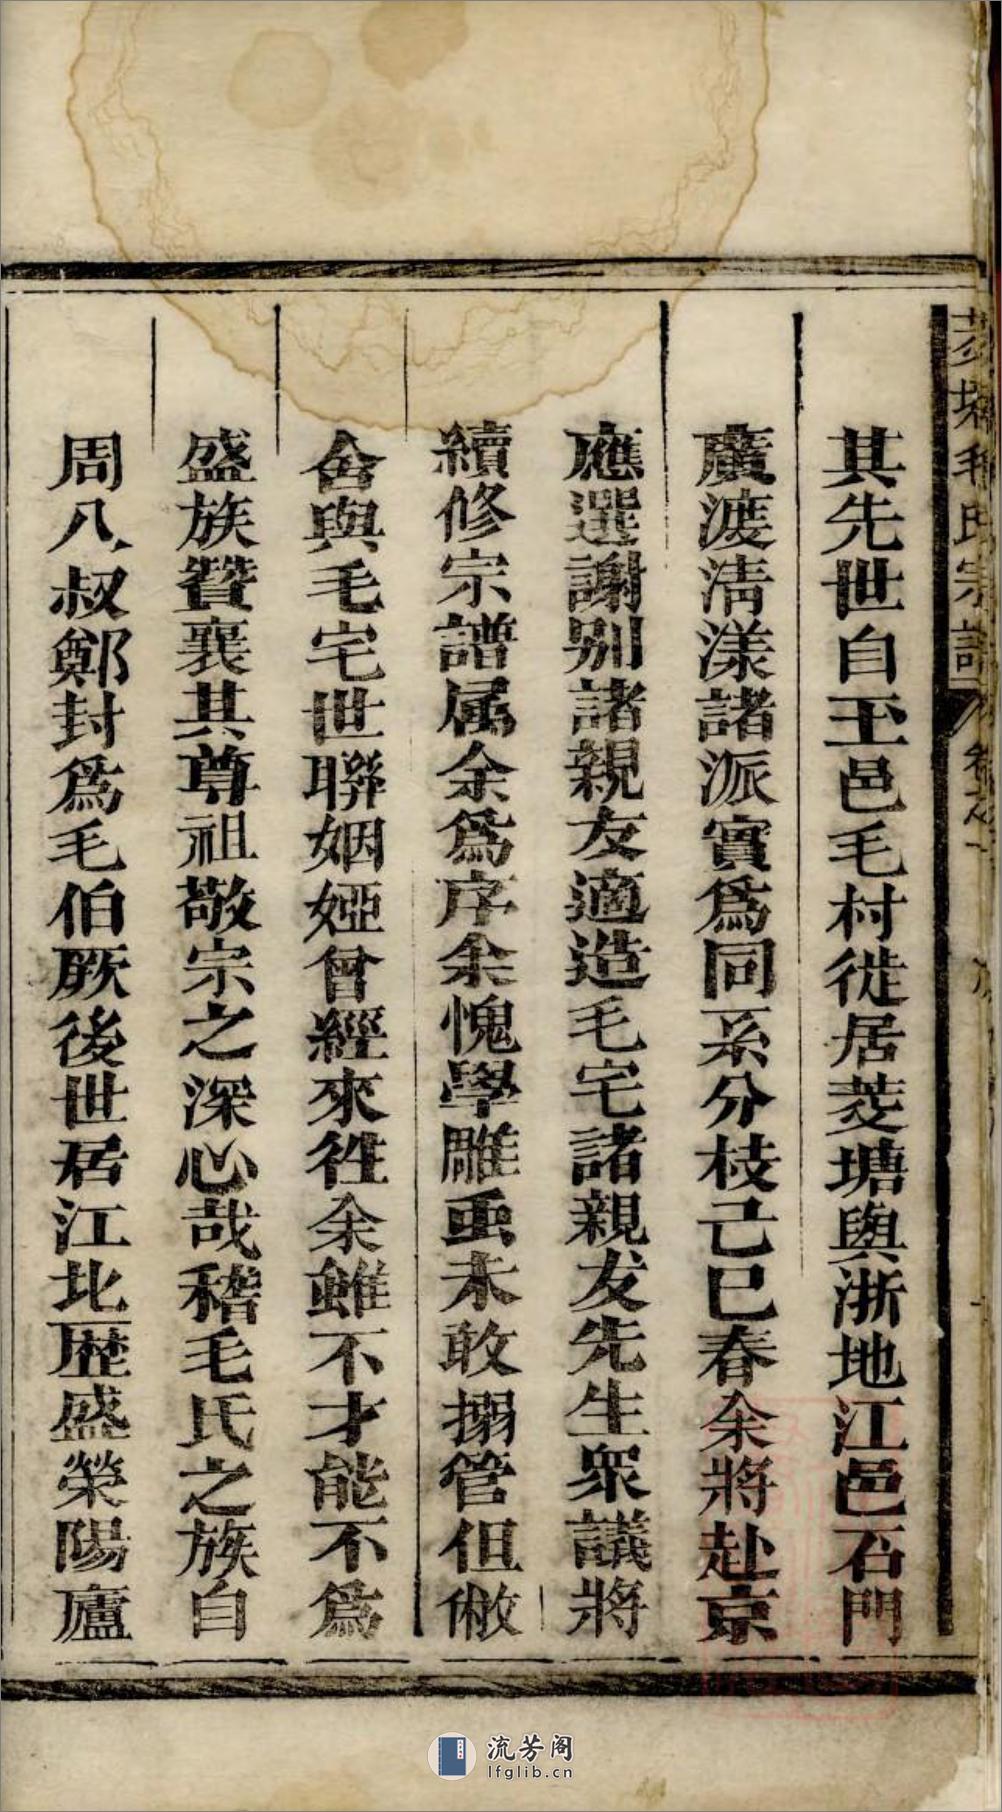 其先世自玊邑毛村徙居菱塘與浙地江邑石門
廣渡淸漾諸派實爲同系分枝己巳春余將赴京
應選謝别諸親友適造毛宅諸親友先生眾議將
續修宗譜属余爲序余愧學雕虫未敢搦管但敝
舍與毛宅世聯姻婭曾經來徃余雖不才能不爲
盛族贊襄其尊祖敬宗之深心哉稽毛氏之族自
周八叔鄭封爲毛伯厥後世居江北歴盛榮陽廬
毛氏宗譜
流芳阁
lfglib.cn